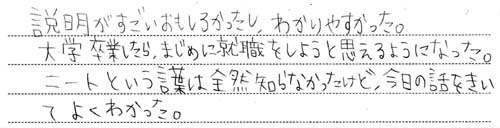 説明がすごいおもしろかったし、わかりやすかった。
大学卒業したら、まじめに就職をしようと思えるようになった。
ニートという言葉は全然知らなかったけど、今日の話をきい
てよくわかった。